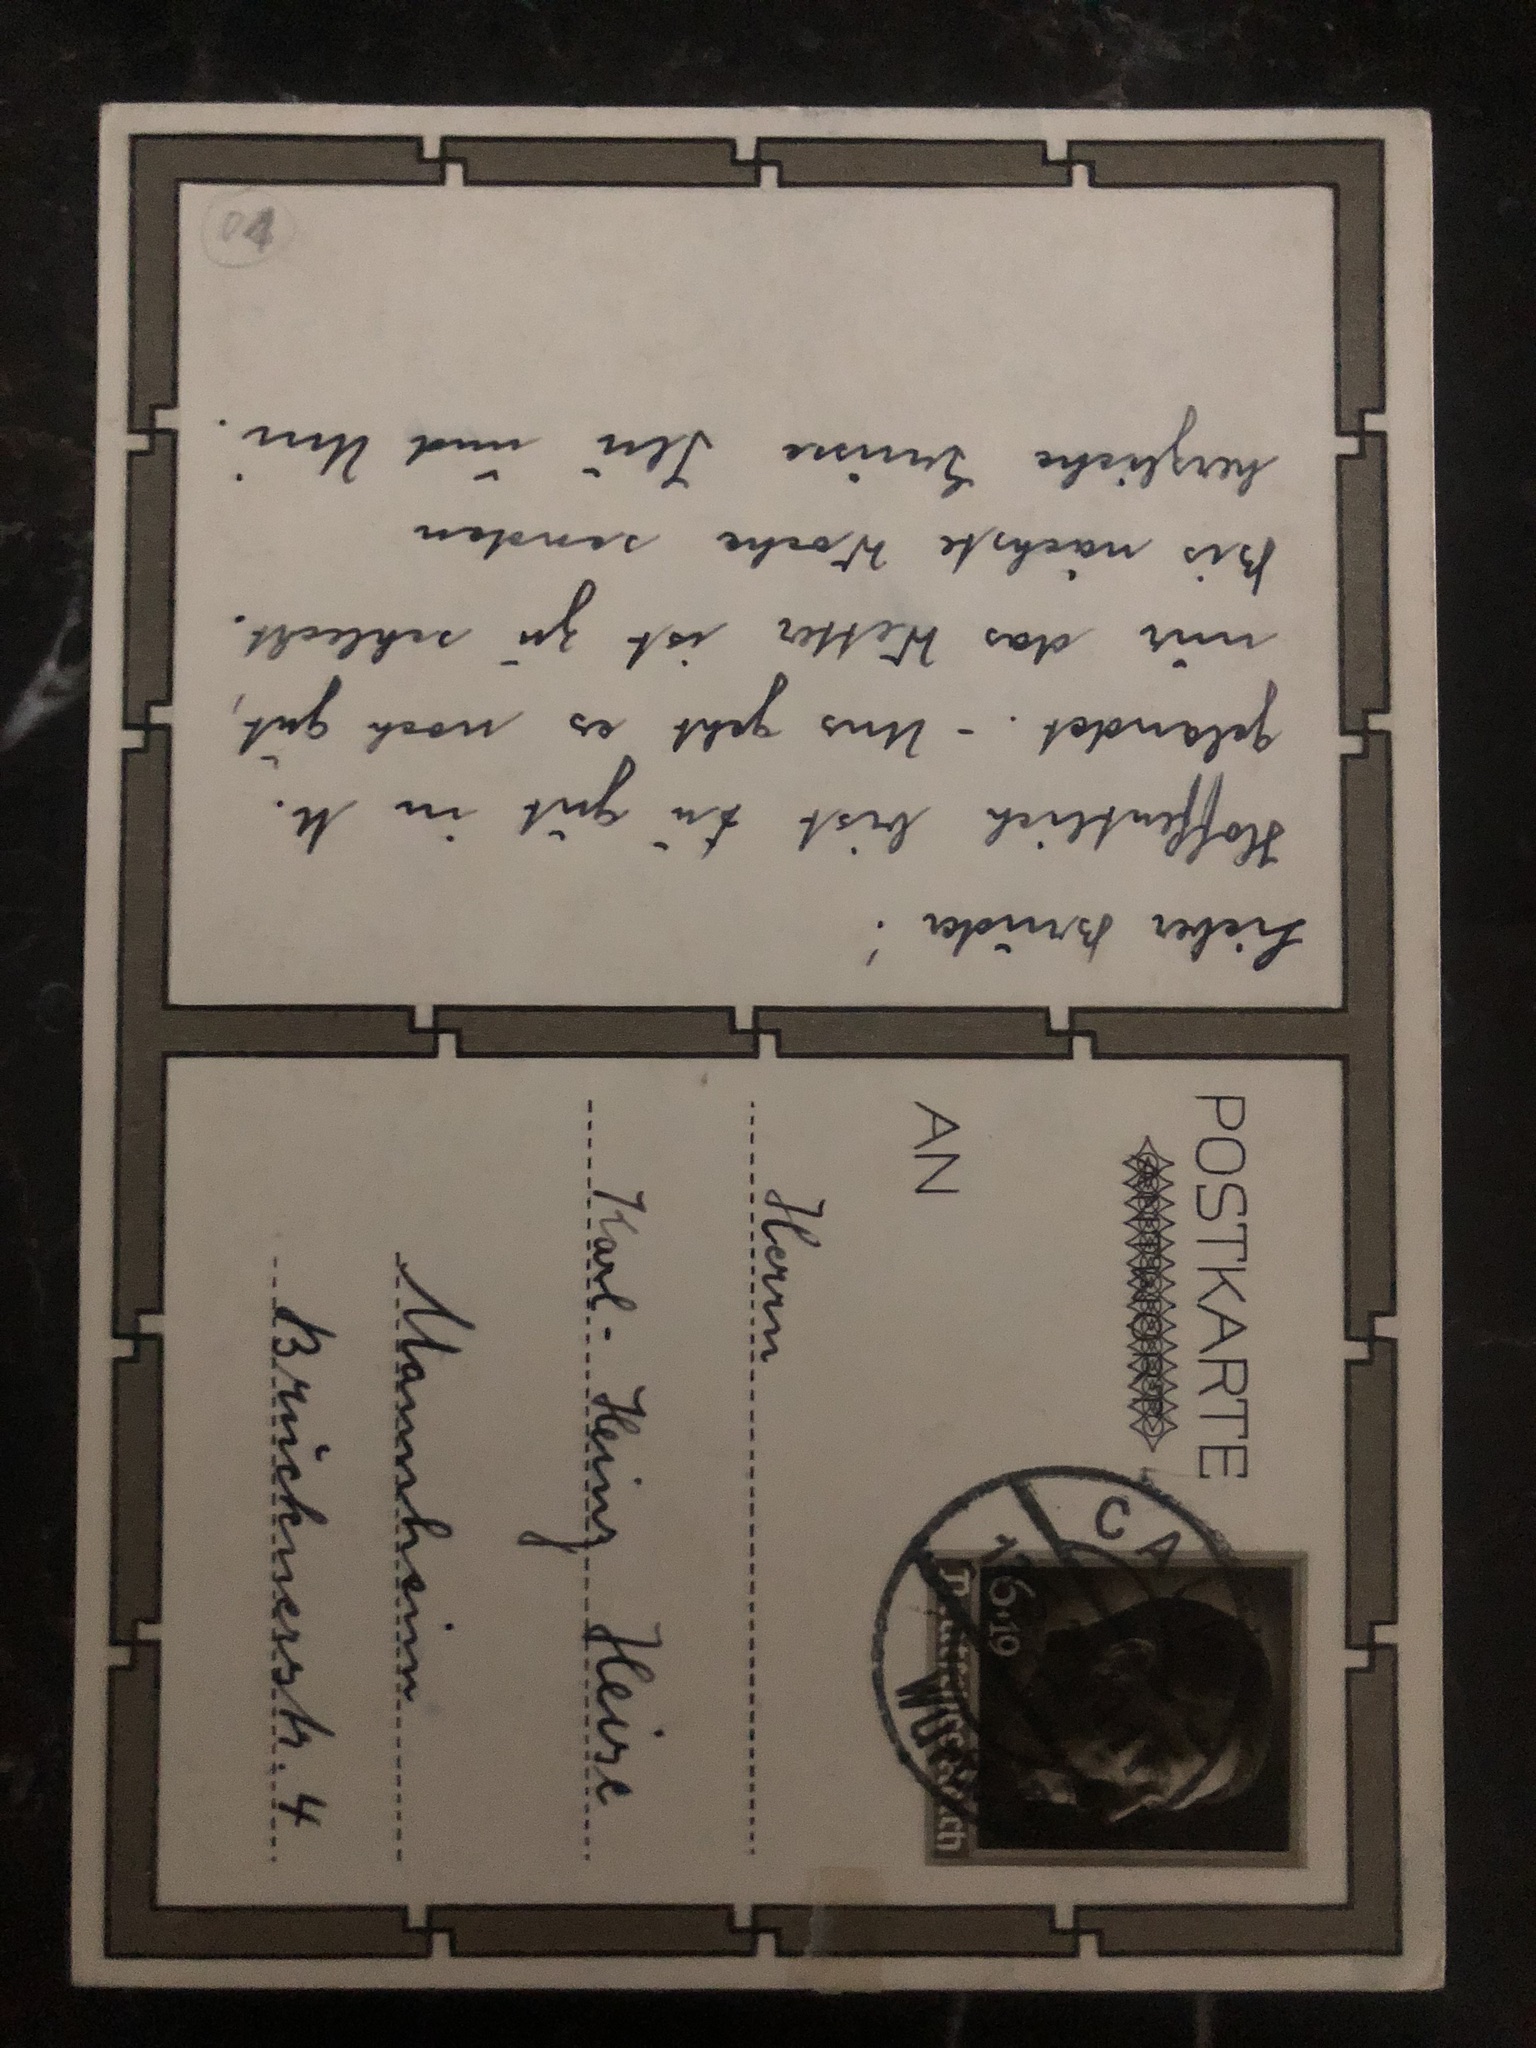 Lieber Bruder!
Hoffentlich bist Du gut in M.
gelandet. - Uns geht es noch gut,
nur das Wetter ist zu schlecht.
Bis nächste Woche senden
herzliche Grüsse und
04
POSTKARTE
AN
Herrn
Karl-Heinz Heise
Mannheim
Brucknerstr. 4
CA
1.6.19
WU